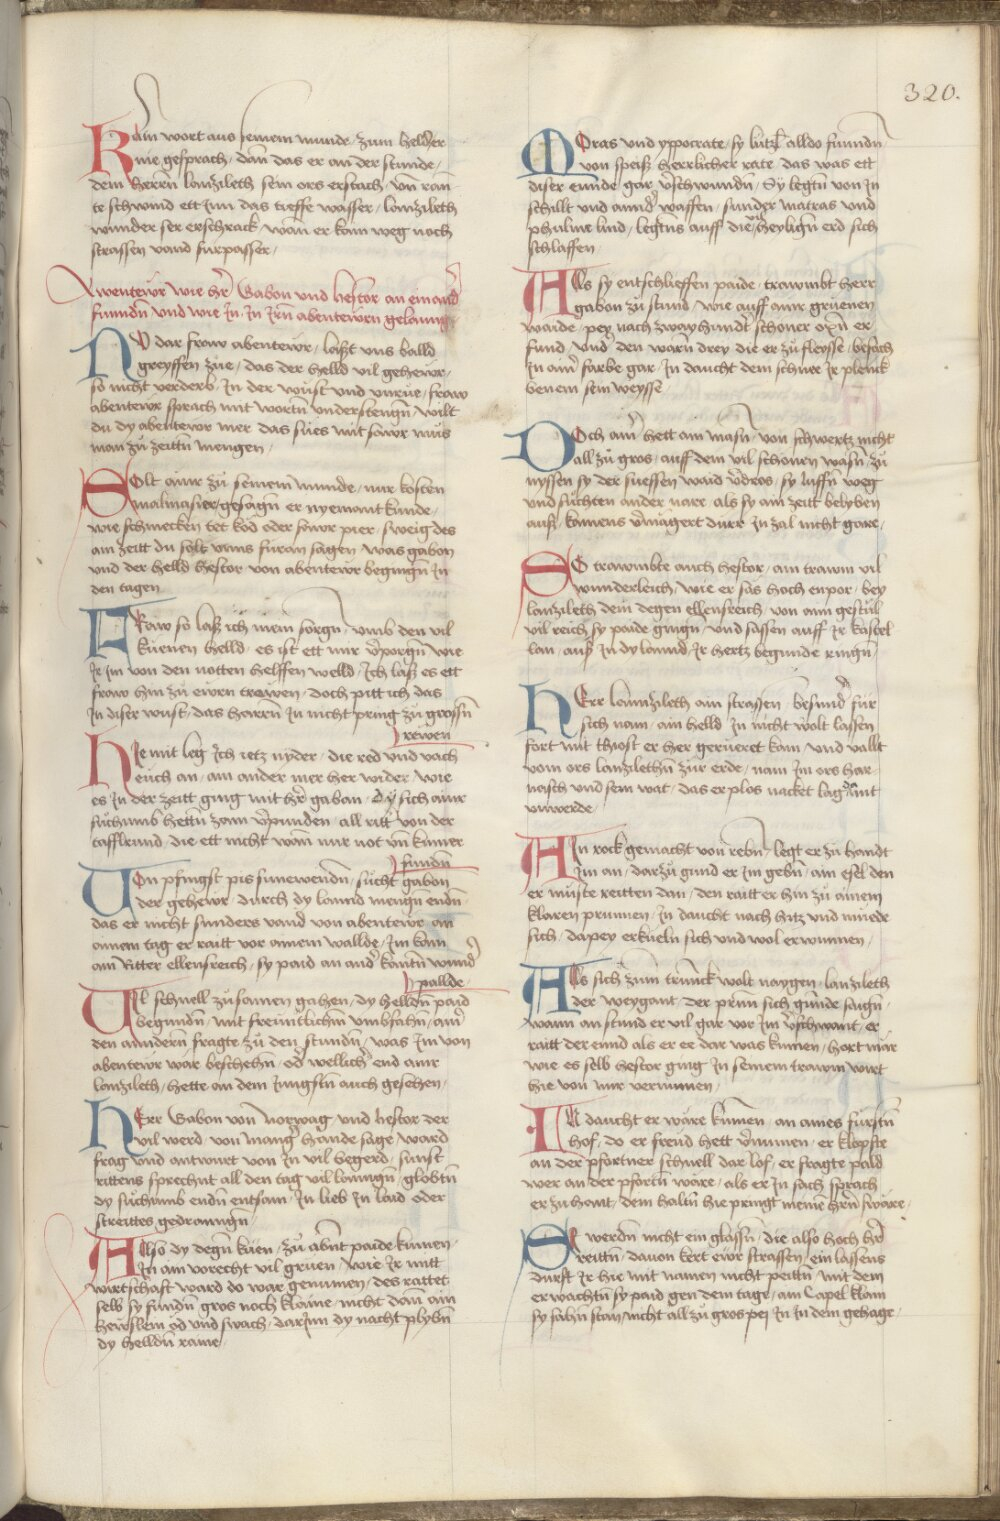 320.
Kam wort aus seinem munde, zum hellder
nie gesprach, dan das er an der stunde,
dem herren lanzileth sein ors erstach, vn̄ ran
te schwind ett Inn das tieffe wasser, lanzileth
wunder ser erschrack, wan er kam weg noch
strassen vand furpasser,
Awentewr wie hr̄ Gabon und hestor an einand̄
funndn̄ vnd wie In, in Irn̄ abentewrn gelanng
NV dar fraw abentewr, laszt vns balld
greyffen zue, das der helld vil gehewr,
so nicht verderb, In der wust vnd vnrue, fraw
abentewr sprach mit wortn̄ vnderstengn̄, wilt
du dy abentewr mer das sues mit sawr mus
man zu zeittn̄ mengen,
Solt ainr zu seinem munde, nur kosten
malmasier, gesagn̄ er nyemant kunde,
wie schmecken tet kod oder sawr pier, sweig des
ain zeitt du solt vnns furan sagen, was gabon
vnd der helld hestor von abentewr begingn̄ In
den tagen
Fraw so lasz ich mein sorgn̄, vmb den vil
kuenen helld, es ist ett mir v̄porgn̄ wie
Ir im von den notten helffen welld, Ich lasz es ett
fraw hin zu ewrn trewen, doch pitt ich das
In diser wust, das harren In nicht pring zu grossn̄
rewen
Hie mit leg Ich ietz nyder, die red vnd vach
euch an, am ander mer her wider, wie
es In der zeitt ging mit hr̄ gabon, dy sich ainr
suchumb hettn̄ zam v̄punden, all ritt von der
tafflrund, die ett nicht wan nur not vn̄ kumer
fundn̄
Von pfingst pis sunewendn̄, sucht gabon
der gehewr, durch dy lannd mengn̄ endn̄
das er nicht sunders vand von abentewr an
ainem tag er raitt vor ainem wallde, Im kam
ain Ritter ellensreich, sy paid an and̄ kantn̄ wund̄
pallde,
Vil schnell zusamen gahen, dy helldn̄ paid
begundn̄, mit freuntlichm̄ vmbfahn̄, ainr̄
den anndern fragte, zu den stundn̄, was Im von
abentewr war beschehn̄, od̄ wellich end ainr
lanzileth, hette an dem Iungstn̄ auch gesehen,
Herr Gabon von Norwag vnd hestor der
vil werd, von manḡ hande sage ward
frag vnd antwurt von In vil begerd, sunst
rittens sprechnt all den tag vil lanngn̄, globtn̄
dy suchumb endn̄ entsam, In lieb In laid oder
streittes gedranngn̄,
Also dy degn̄ kuen, zu abnt paide kumen
In ain vorecht vil gruen, wie Ir mitt
wirtschaft ward do war genumen, des rattet
selb sy fundn̄ gros noch klaine, nicht dan ain
hewslein od vnd swach, darinn dy nacht plybn̄
dy helldn̄ raine,
Moras vnd yppocrate, sy lutzl̄ alldo funndn̄
von speisz herrlicher rate, das was ett
diser ennde gar v̄schwundn̄, Sy legtn̄ von In
schillt vnd annd̄ waffen, sunder matras vnd
phulwe lind, legtens auff die heylign̄ erd sich
schlaffen,
Als sy entschlieffen paide, trawmbt herr
gabon zu stund, wie auff ainr gruenen
waide, pey nach zwayhundt̄ schoner oxn̄ er
fund, vnd den warn drey die er zu fleysse, besach
In ainr̄ farbe gar, In daucht dem schnee Ir plenck
benem sein weysse,
Doch ainr̄ hett ain masn̄, von schwertz nicht
all zu gros, auff dem vil schonen wasn̄, zu
nyssen sy der suessen waid v̄dros, sy luffn̄ weg
vnd suchten ander nare, als sy ain zeitt belyben
aus, kamens v̄magert durr, In zal nicht gare,
So trawmbte auch hestor, ain trawm vil
wunderleich, wie er sas hoch enpor, bey
lanzileth dem degen ellensreich, von aim gestul
vil reich, sy paide gingn̄, vnd sassen auff Ir kastel
lan, aus In dy lannd, Ir hertz begunde ringn̄
Herr lannzileth ain strassen, besund̄ fur
sich nam, ain helld In nicht wolt lassen,
fort mit thiost er her gerueret kam, vnd vallt
vom ors lanzilethn̄ zur erde, nam im ors har
nasch vnd sein wat, das er plos nacket lag da mit
vnwerde,
Ain rock gemacht von rebn̄, legt er zu handt
Im an, darzu gund er Im gebn̄, ain esel den
er muste reitten dan, den raitt er hin zu ainem
klaren prunnen, In daucht nach hitz vnd muede
sich, dapey erkueln sich vnd wol erwunnen,
Als sich zum trunck wolt naygen, lanzileth
der weygant, der prunn sich gunde saign̄,
wann an stund er vil gar vor Im v̄schwant, er
raitt der ennd als er ee dar was kumen, hort war
wie es selb hestor ging In seinem trawm wirt
hie von mir vernumen,
In daucht er ware kumen, an aines furstn̄
hof, do er freud hett v̄numen, er klopfte
an der pfortner schnell dar lof, er fragte pald
wer an der pfortn̄ ware, als er In sach, sprach
er zuhant, dem haltn̄ hie pringt meinē hrn̄ sware,
Ir werdn̄ nicht ein glassn̄, die also hoch hr̄
reittn̄, dauon kert ewr strassen, ein lassens
durft Ir hie mit namen nicht peittn̄, mit dem
erwachtn̄ sy paid gen dem tage, ain Capel klain
sy sahn̄ stan, nicht all zu gros pei In In dem gehage,